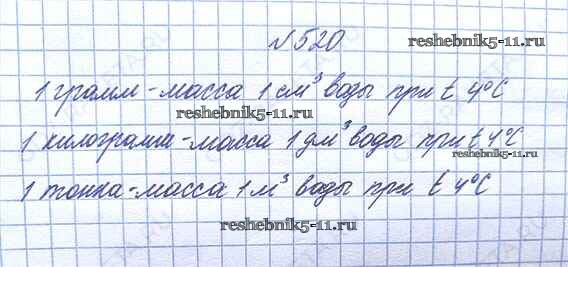 №520
reshebnik5-11.ru
1 грамм - масса 1 см³ воды при t 4°C
reshebnik5-11.ru
1 килограмм - масса 1 дм³ воды при t 4°C
reshebnik5-11.ru
1 тонна - масса 1 м³ воды при t 4°C
reshebnik
5-11.ru